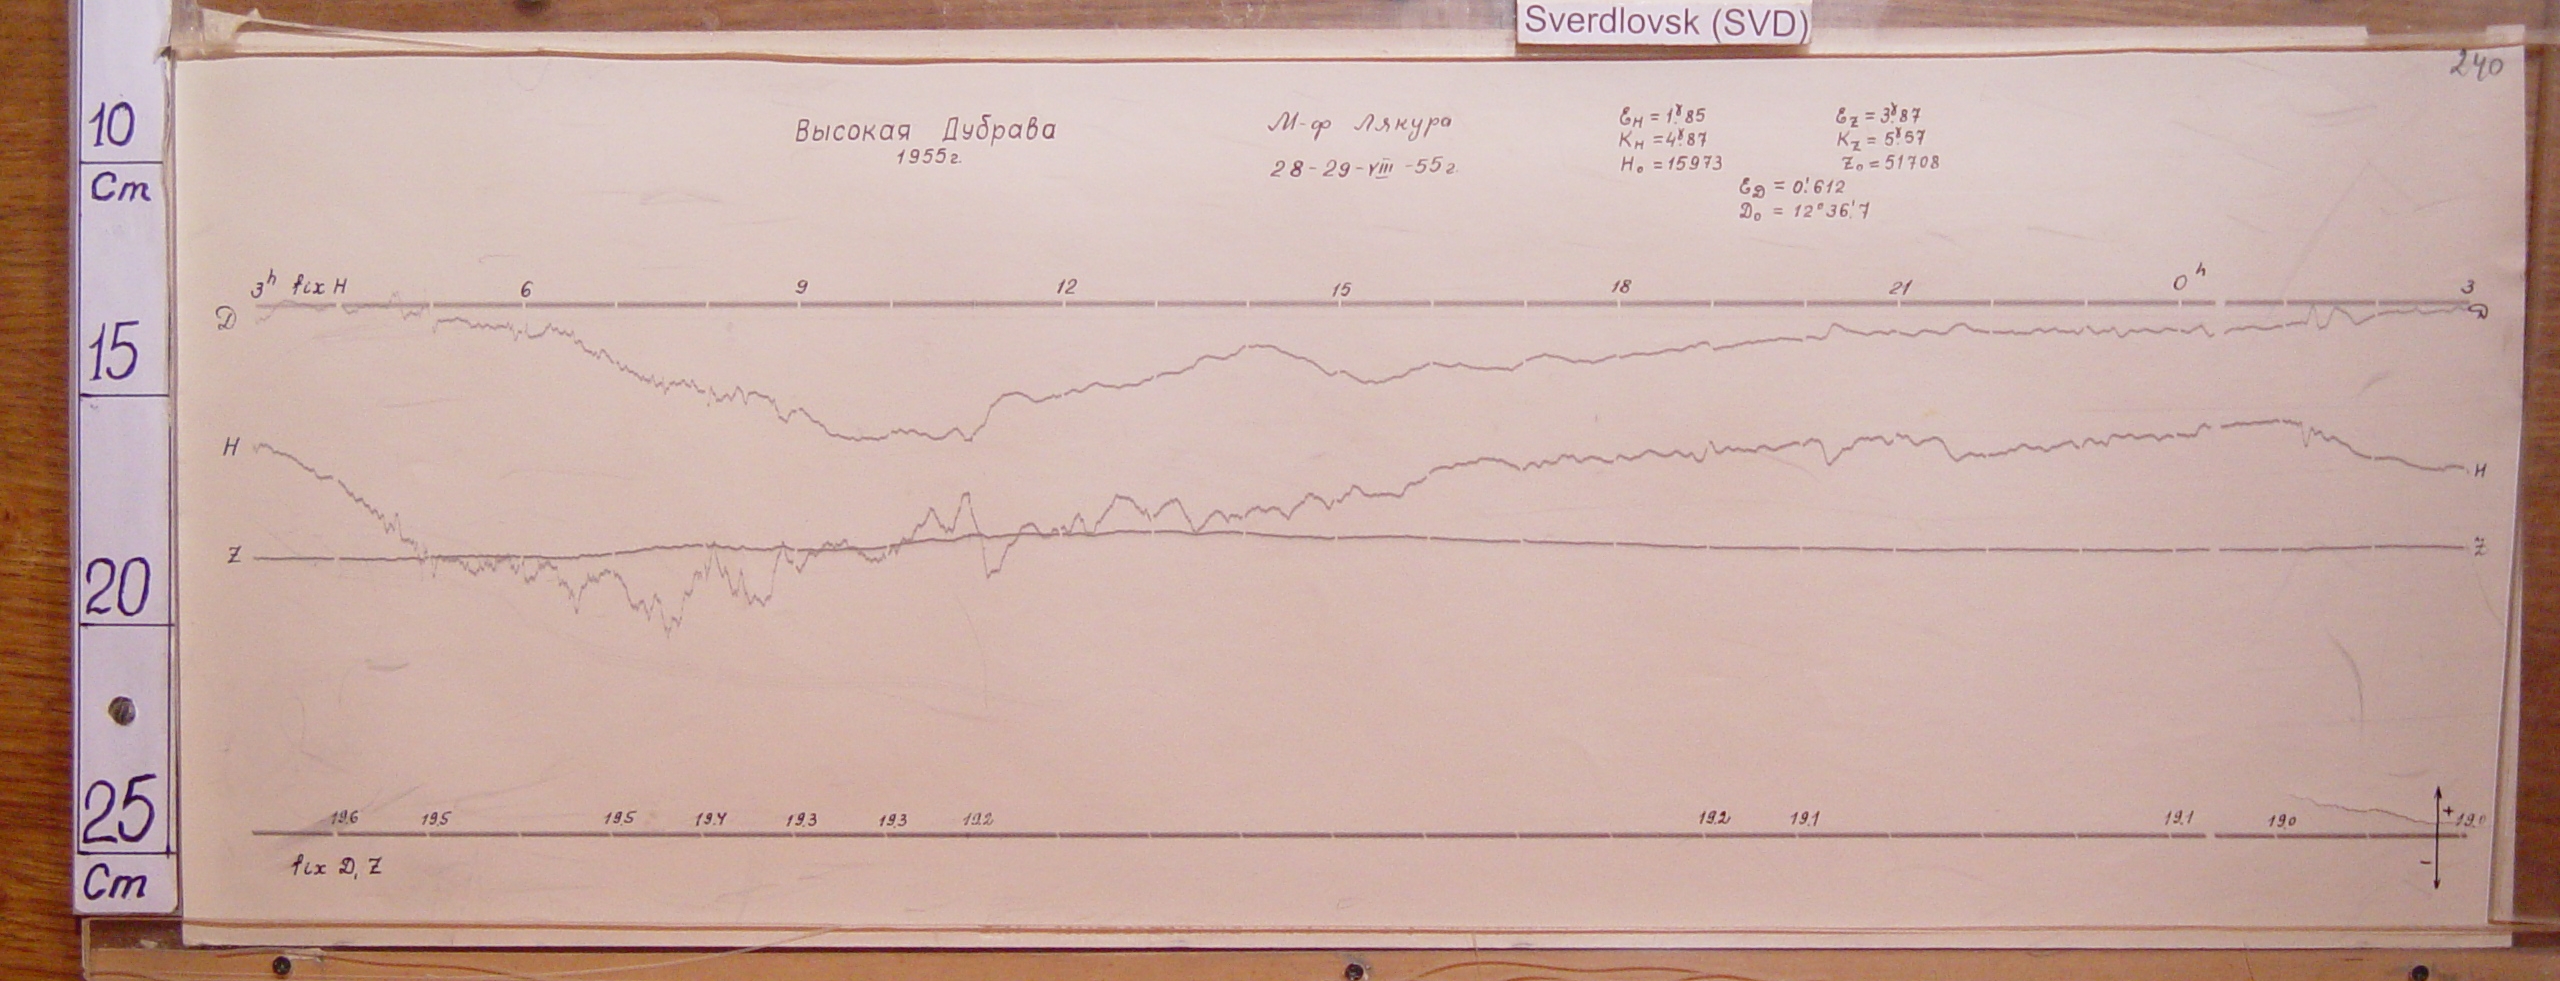 Sverdlovsk (SVD)
240
10
Cm
15
20
25
Cm
Высокая Дубрава
1955г.
М-ф Лякура
28-29-VIII-55г.
ЕH = 1.ˠ85
KH = 4.ˠ87
H₀ = 15973
ЕZ = 3.ˠ87
KZ = 5.ˠ57
Z₀ = 51708
ЕD = 0.'612
D₀ = 12°36.'7
3ʰ fix H 6 9 12 15 18 21 0ʰ 3
D D
H H
Z Z
19.6 19.5 19.5 19.4 19.3 19.3 19.2 19.2 19.1 19.1 19.0 19.0
+
-
fix D, Z